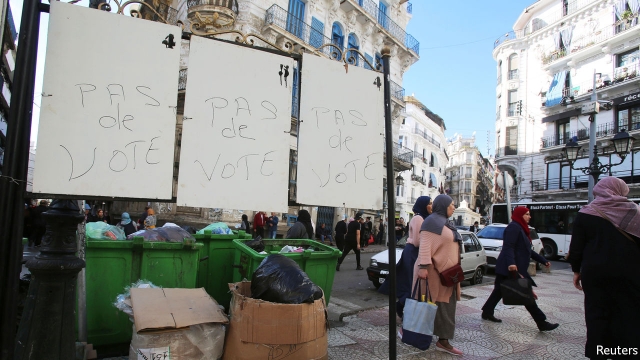 PAS
de
VOTE
PAS
de
VOTE
PAS
de
VOTE
Reuters